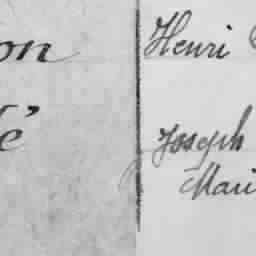 on
é
Henri
Joseph
Mari